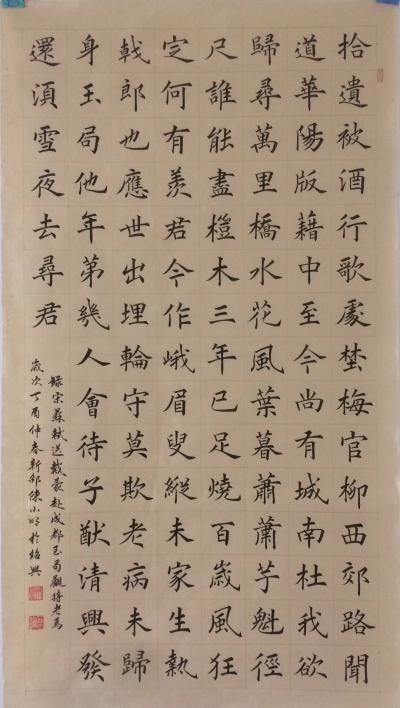 拾遺被酒行歌處埜梅官柳西郊路聞
道華陽版藉中至今尚有城南杜我欲
歸尋萬里橋水花風葉暮蕭蕭芋魁徑
尺誰能盡榿木三年已足燒百歲風狂
㝎何有羨君今作峨眉叟縱未家生執
戟郎也應世出埋輪守莫欺老病未歸
身玉局他年第幾人會待子猷清興發
還湏雪夜去尋君
録宋蘇軾送戴蒙赴成都玉局觀將老焉
歲次丁酉仲春新邨陳小明於紹興